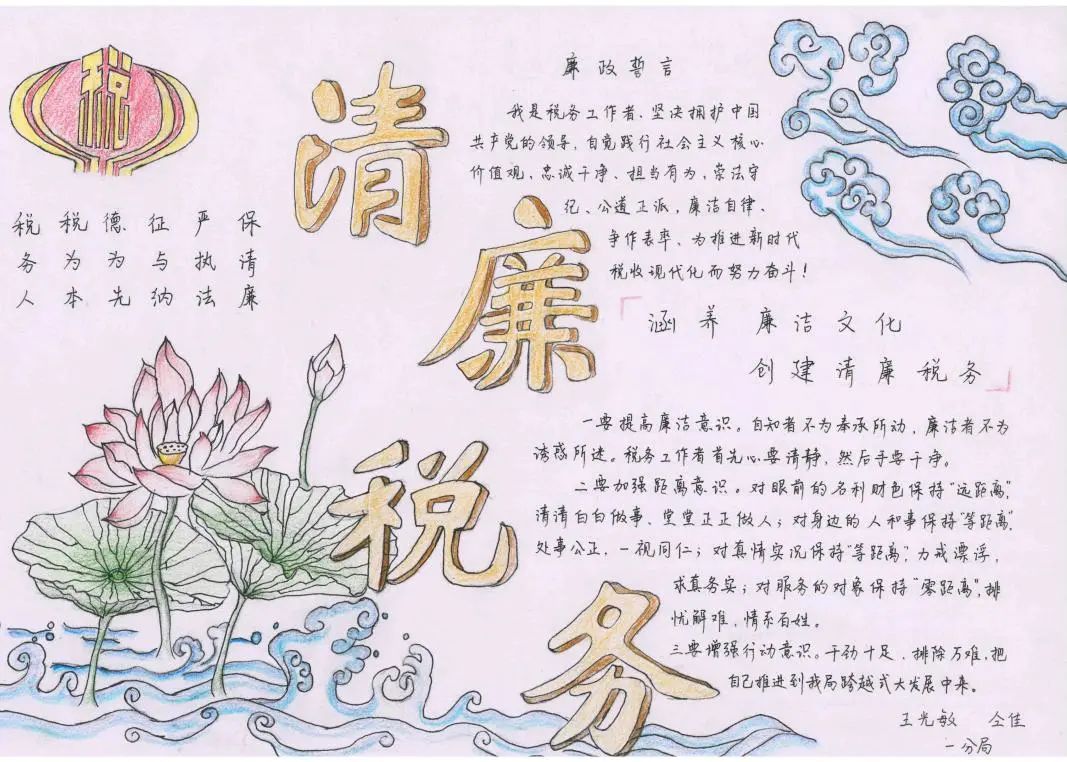 税
清
廉
税
务
税 税 德 征 严 保
务 为 为 与 执 请
人 本 先 纳 法 廉
廉政誓言
我是税务工作者、坚决拥护中国
共产党的领导,自觉践行社会主义核心
价值观、忠诚干净、担当有为、崇法守
纪、公道正派,廉洁自律、
争作表率、为推进新时代
税收现代化而努力奋斗!
「涵养 廉洁文化
创建清廉税务」
一要提高廉洁意识。自知者不为奉承所动,廉洁者不为
诱惑所迷。税务工作者首先心要清静,然后手要干净。
二要加强距离意识。对眼前的名利财色保持“远距离”,
清清白白做事、堂堂正正做人;对身边的人和事保持“等距离”,
处事公正,一视同仁;对真情实况保持“等距离”,力戒漂浮,
求真务实;对服务的对象保持“零距离”,排
忧解难,情系百姓。
三要增强行动意识。干劲十足、排除万难,把
自己推进到我局跨越式大发展中来。
王光敏 仝佳
一分局